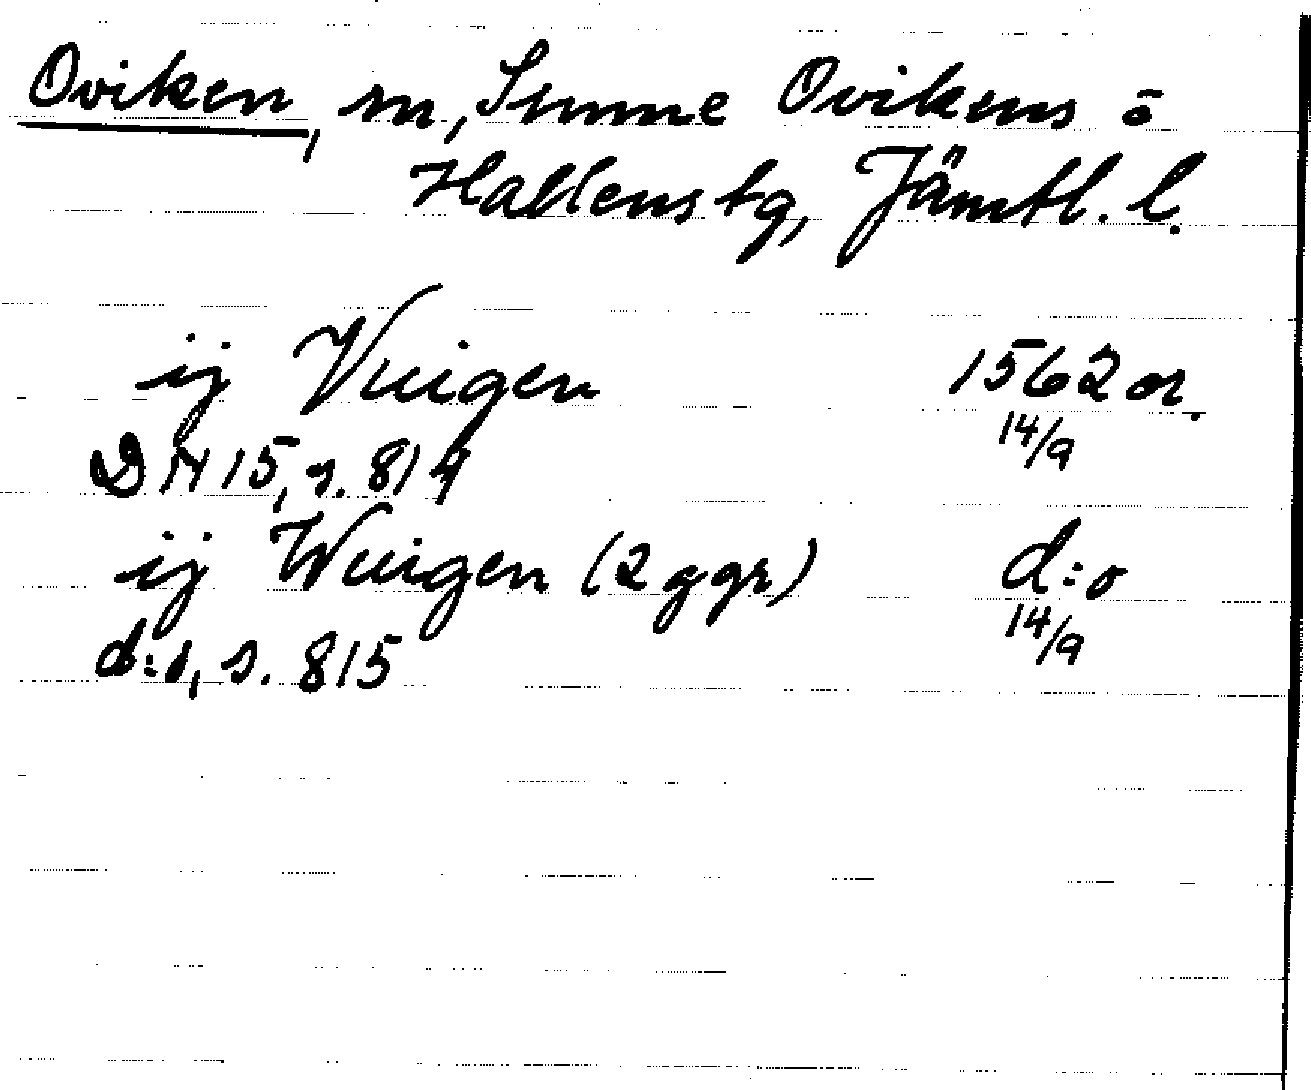 Oviken, sn, Sunne Ovikens o
Hallens tg, Jämtl. l.
ij Vuigen 1562 or.
14/9
DN 15, s. 814
ij Wuigen (2 ggr) d:o
14/9
d:o, s. 815